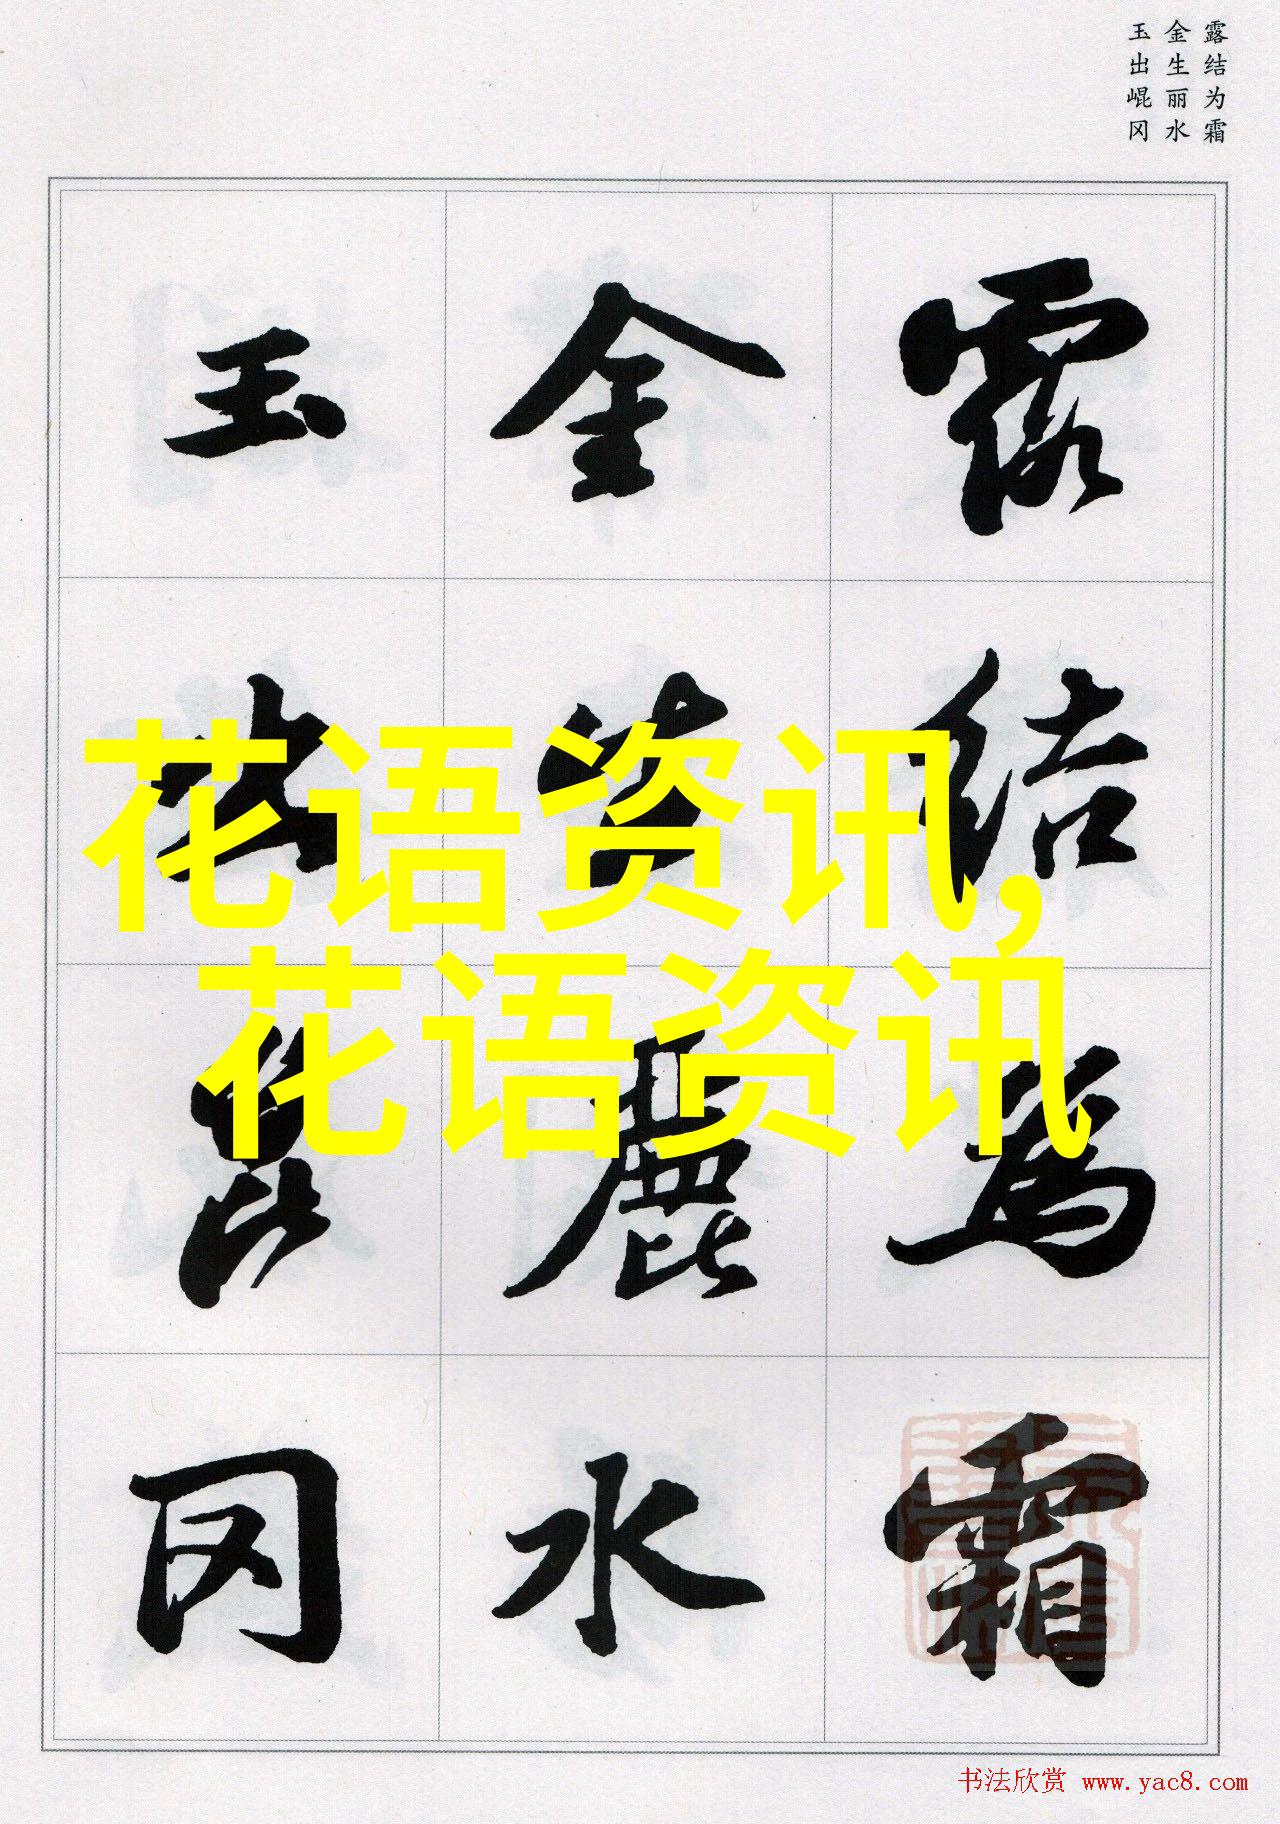 露结为霜
金生丽水
玉出崐冈
露結為霜
金生麗水
玉出崑冈
花语资讯,
花语资讯
书法欣赏 www.yac8.com